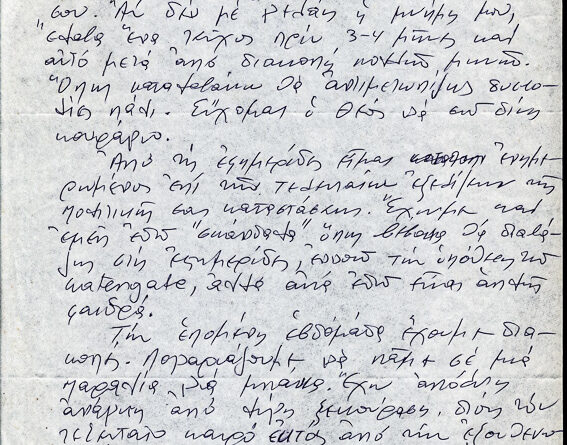 σου. Ἄν δέν μέ γελάει ἡ μνήμη μου,
ἔλαβα ἕνα τεῦχος πρίν 3-4 μῆνες καί
αὐτό μετά ἀπό διακοπή πολλῶν μηνῶν.
Ὅπως καταλαβαίνω θά ἀντιμετωπίζεις δυσκο-
λίες πάλι. Εὔχομαι ὁ Θεός νά σοῦ δίνῃ
κουράγιο.
Ἀπό τίς ἐφημερίδες εἶμαι ἐνημε-
ρωμένος ἐπί τῶν τελευταίων ἐξελίξεων τῆς
πολιτικῆς σας καταστάσεως. Ἔχουμε καί
ἐμεῖς ἐδῶ "σκάνδαλα" ὅπως βέβαια θά διαβά-
ζῃς στίς ἐφημερίδες, ἐννοῶ τήν ὑπόθεση τοῦ
Watergate, ἀλλά ἐδῶ εἶναι
Τήν ἑπομένη ἑβδομάδα ἔχουμε δια-
κοπές. Λογαριάζουμε νά πᾶμε σέ μιά
παραλία γιά μπάνια. Ἔχω ἀπόλυτη
ἀνάγκη ἀπό λίγη ξεκούραση, διότι τόν
τελευταῖο καιρό ἐκτός ἀπό τήν